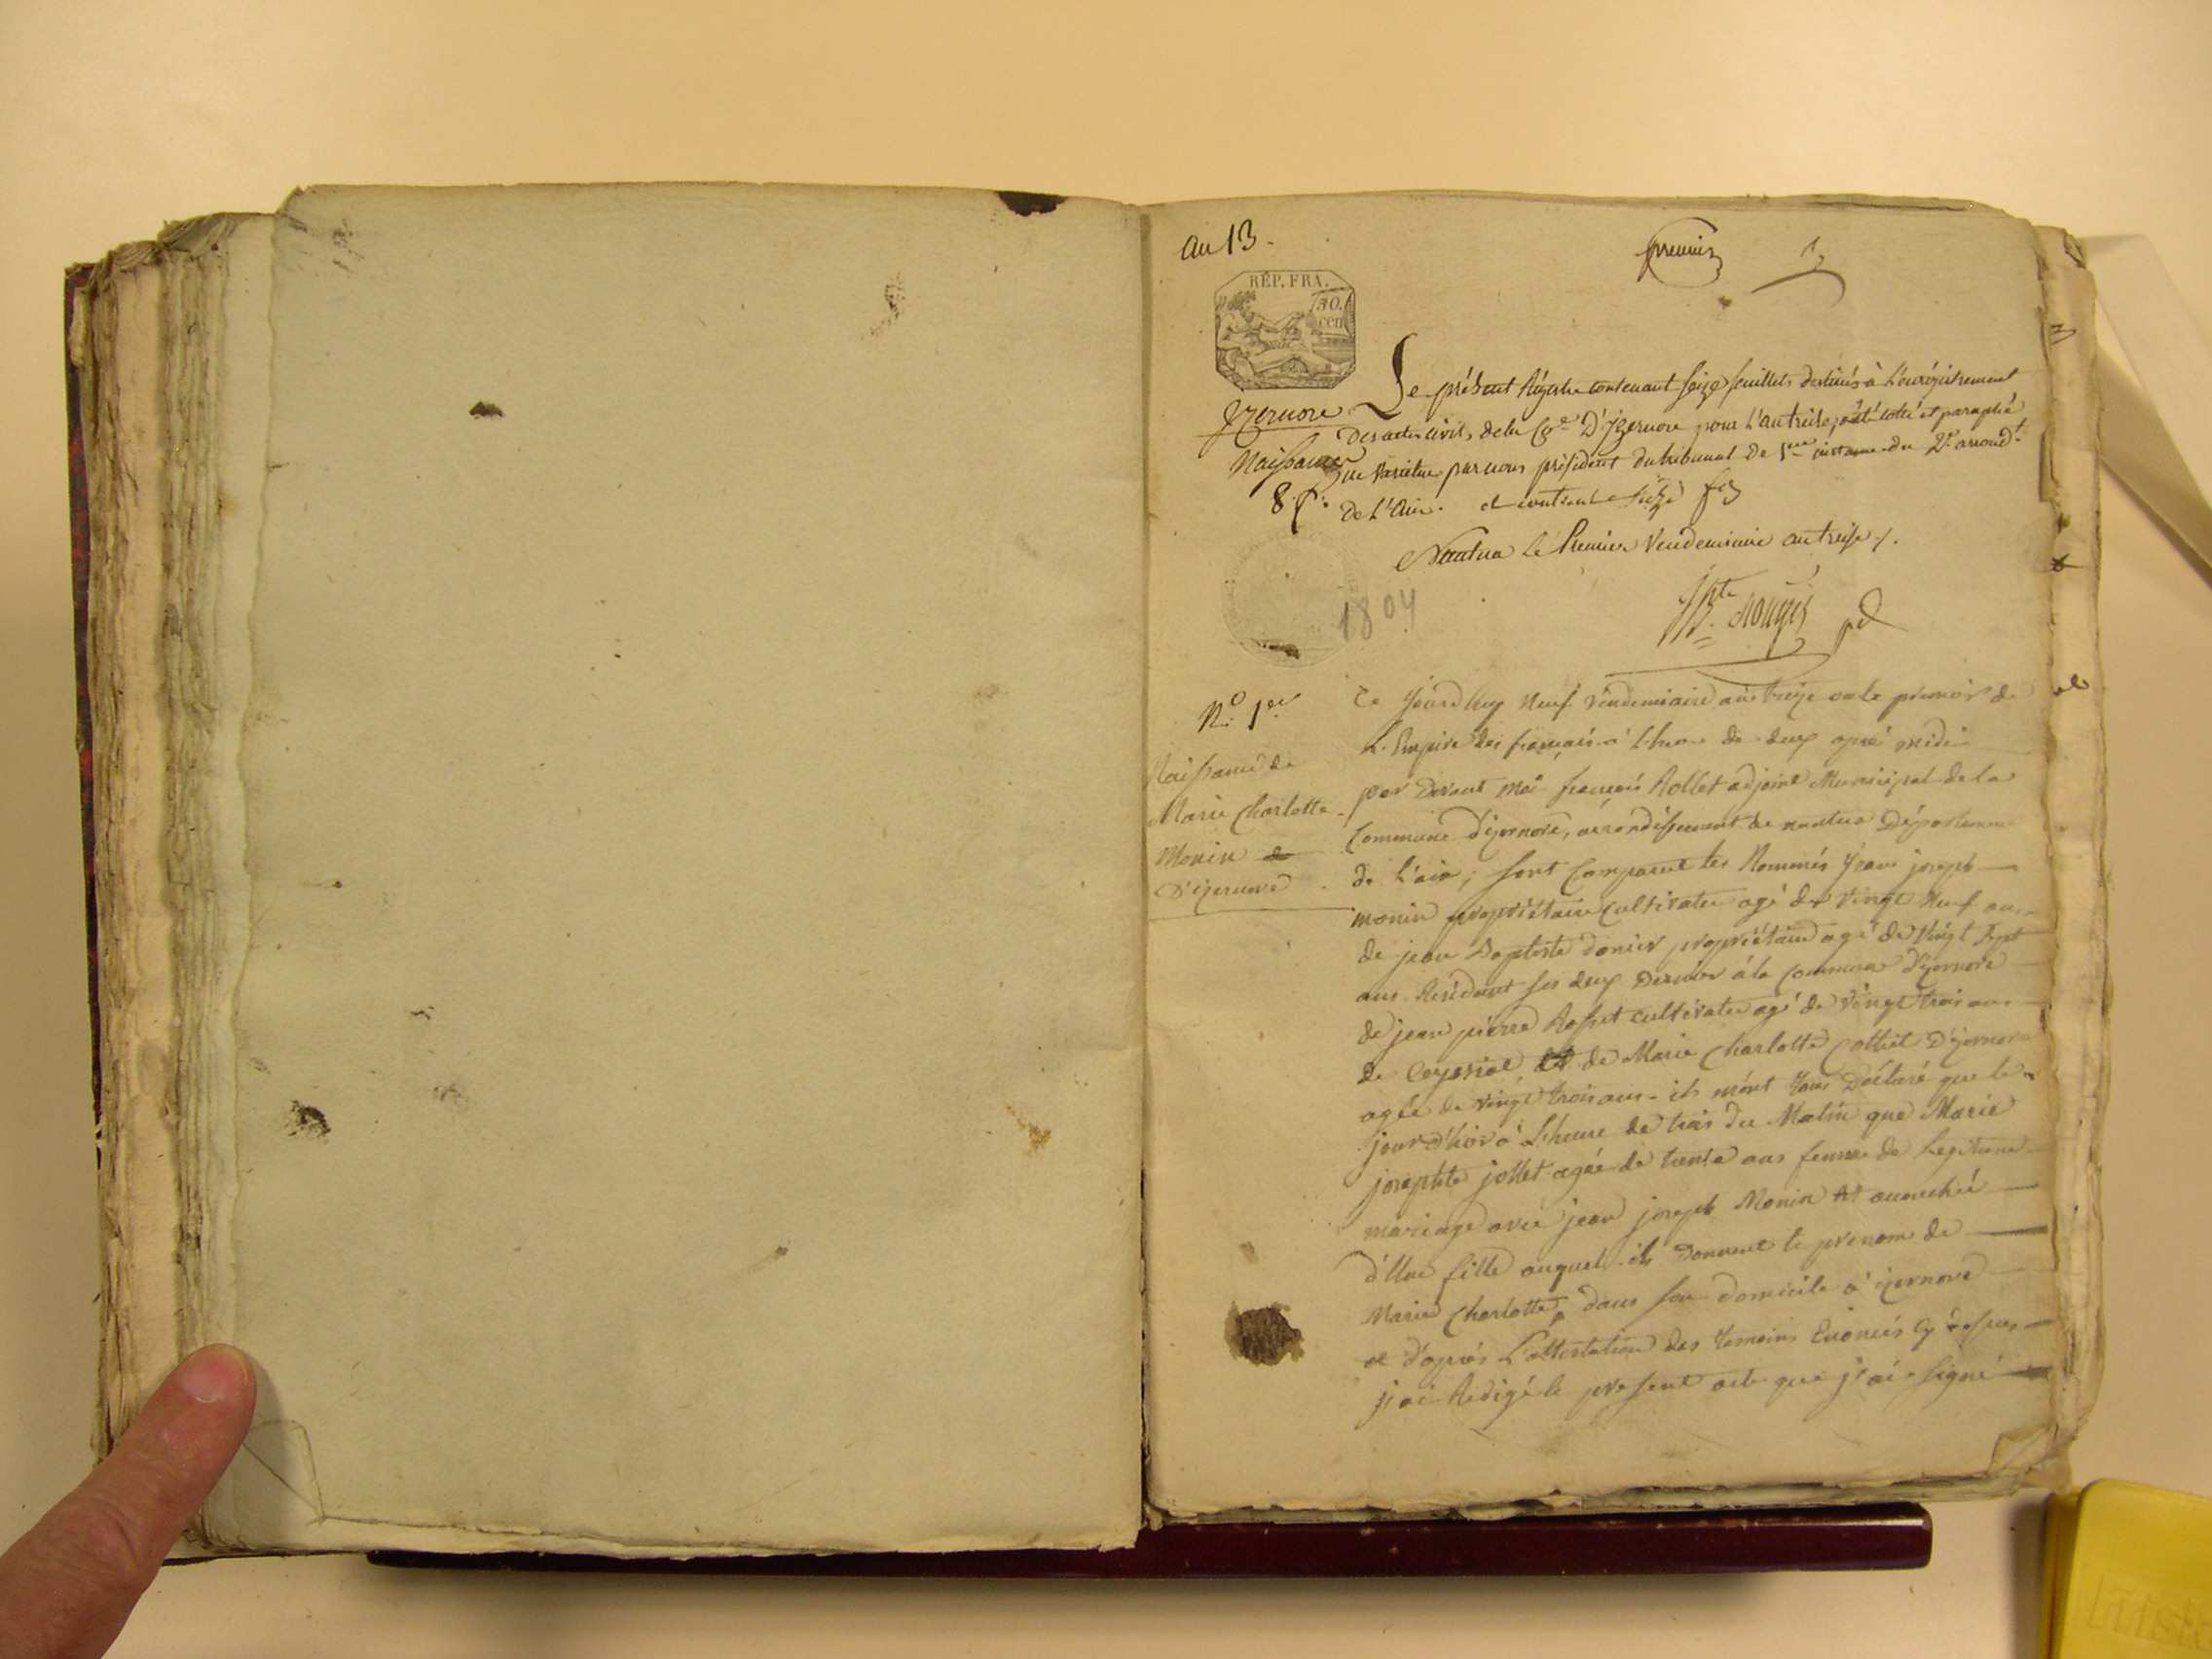 an 13.
premier
1
RÉP. FRA.
Le présent Régistre contenant seize feuillets destinés à L'enrégistrement
Izernore
des actes civils de la Cne D'Izernore pour L'an treize, a été cotté et paraphé
Naissances
ne varietur par nous président du tribunal de 1ere instance du 2e arrondt
8
de L'Ain. et contient seize
Nantua le Premier Vendemiaire an treise
1804
No. 1er
Ce Jourd'huy neuf vendemiaire an treize ou le premier de
L'Empire des français à L'heure de deux aprés midi
Naissance de
par devant moi françois Rollet adjoint Municipal de la
Marie Charlotte
Commune d'izernore, arrondissement de nantua Département
Monin de
de L'ain; sont Comparut les Nommés Jean joseph
D'izernore
monin propriétaire Cultivateur agé de vingt Neuf ans
de jean Baptiste donier propriétaire agé de vingt sept
ans Résident ses deux dernier à la Commune D'izernore
de jean pierre Rosset cultivateur agé de vingt trois ans
de Ceyssiat et de Marie Charlotte D'izernore
agée de vingt trois ans - ils m'ont tous Déclaré que le
jour d'hier à L'heure de trois du Matin que Marie
josephte jollet agée de trente ans femme de Legitime
mariage avec jean joseph Monin et accouché
d'Une fille auquel ils donnent le prenom de
Marie Charlotte, dans son domicile à izernore
et d'aprés L'attestation des temoins Enoncés cy
j'ai Redigé le present acte que j'ai signé